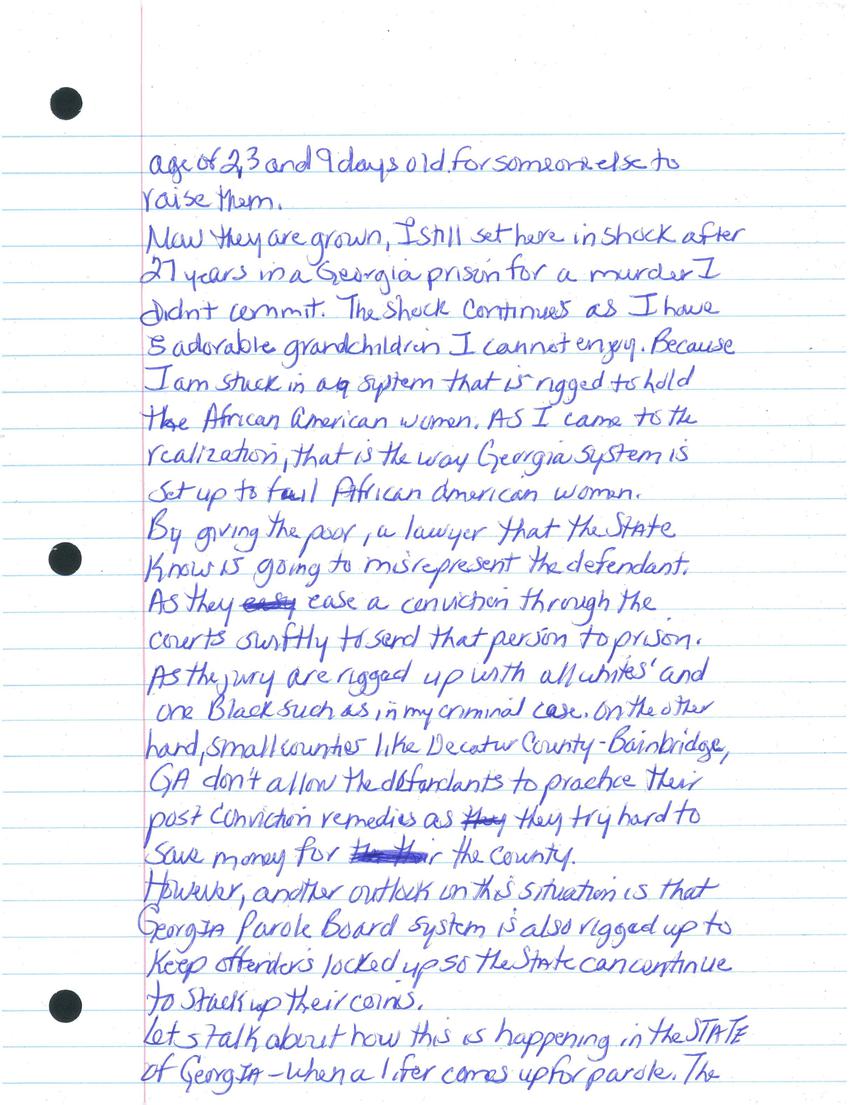 age of 2,3 and 9 days old. for someone else to
raise them.
Now they are grown, I still set here in shock after
27 years in a Georgia prison for a murder I
didnt commit. The shock continues as I have
5 adorable grandchildren I cannot enjoy. Because
I am stuck in a system that is rigged to hold
the African American women. AS I came to the
realization, that is the way Georgia system is
set up to fail African American women.
By giving the poor, a lawyer that the STATE
Know is going to misrepresent the defendant.
As they easy ease a conviction through the
courts swiftly to send that person to prison.
As the jury are rigged up with all whites' and
one Black such as, in my criminal case. On the other
hand, small counties like Decatur County-Bainbridge,
GA don't allow the defendants to practice their
post conviction remedies as they they try hard to
save money for the county.
However, another outlook on this situation is that
GeorgIA Parole Board system is also rigged up to
Keep offenders locked up so the STATE can continue
to stack up their coins.
Let's talk about how this is happening in the STATE
of GeorgIA - when a lifer comes up for parole. The